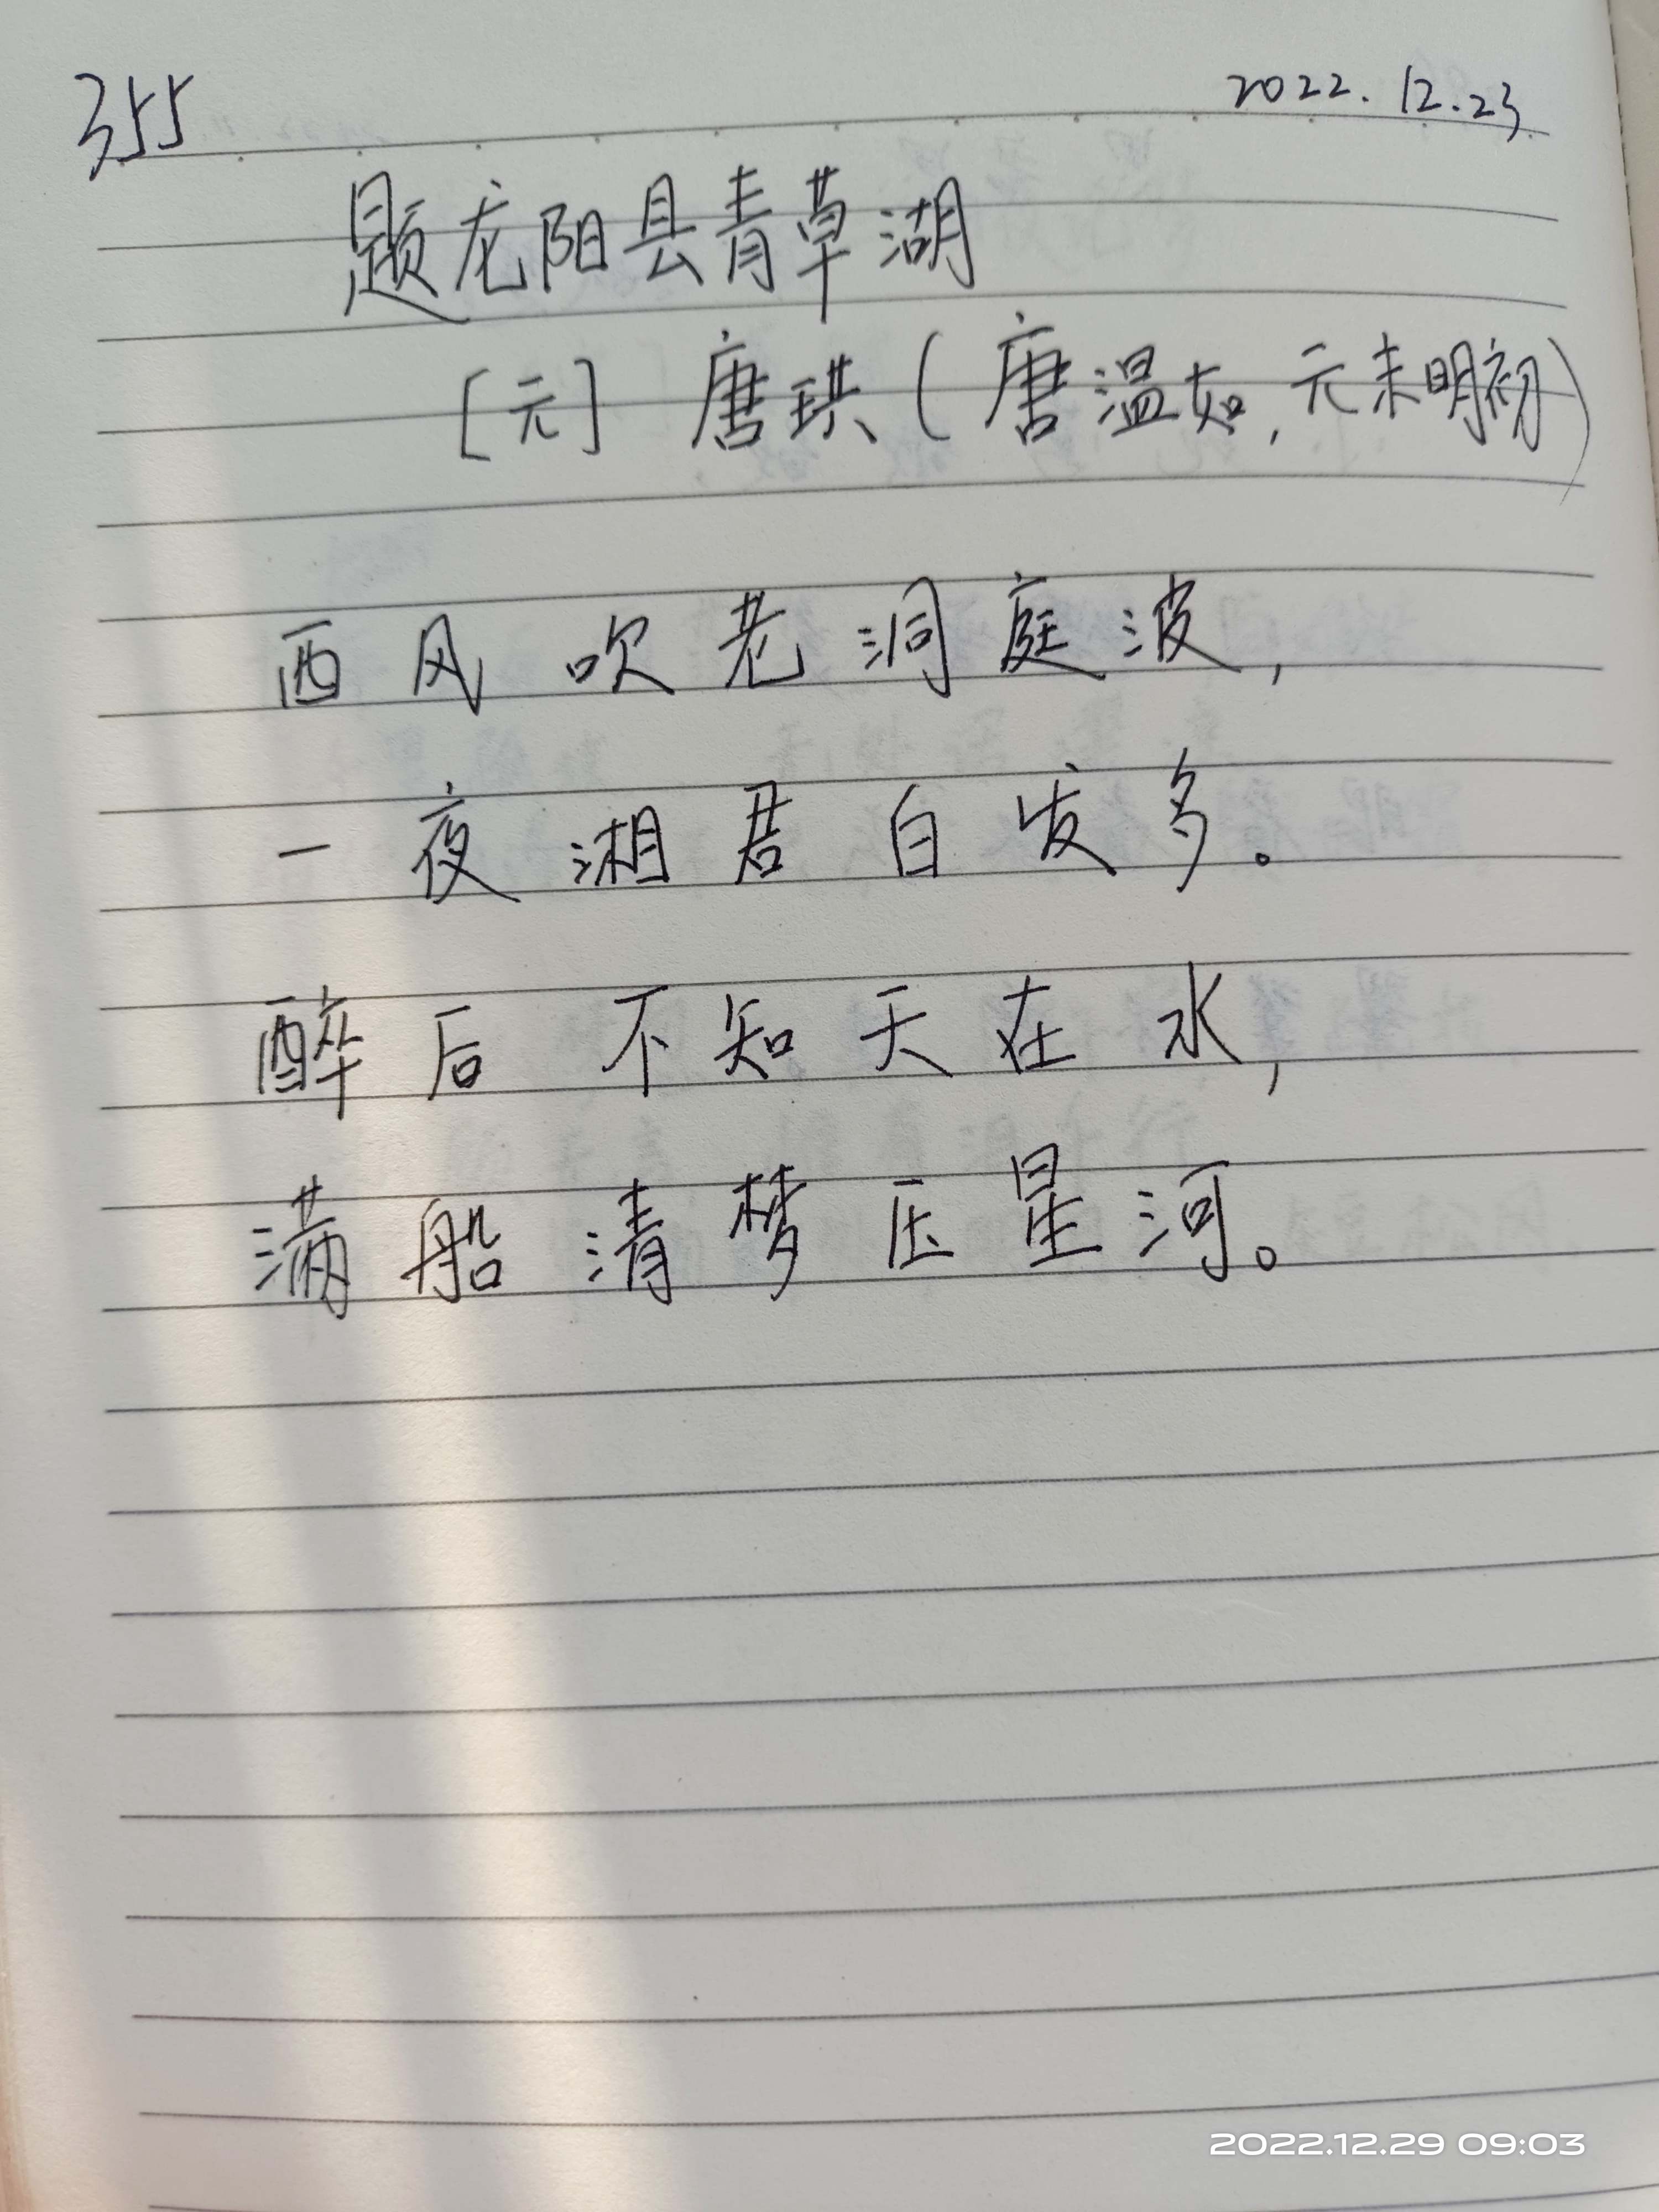 355 2022.12.23
题龙阳县青草湖
[元] 唐珙(唐温如,元末明初)
西风吹老洞庭波,
一夜湘君白发多。
醉后不知天在水,
满船清梦压星河。
2022.12.29 09:03